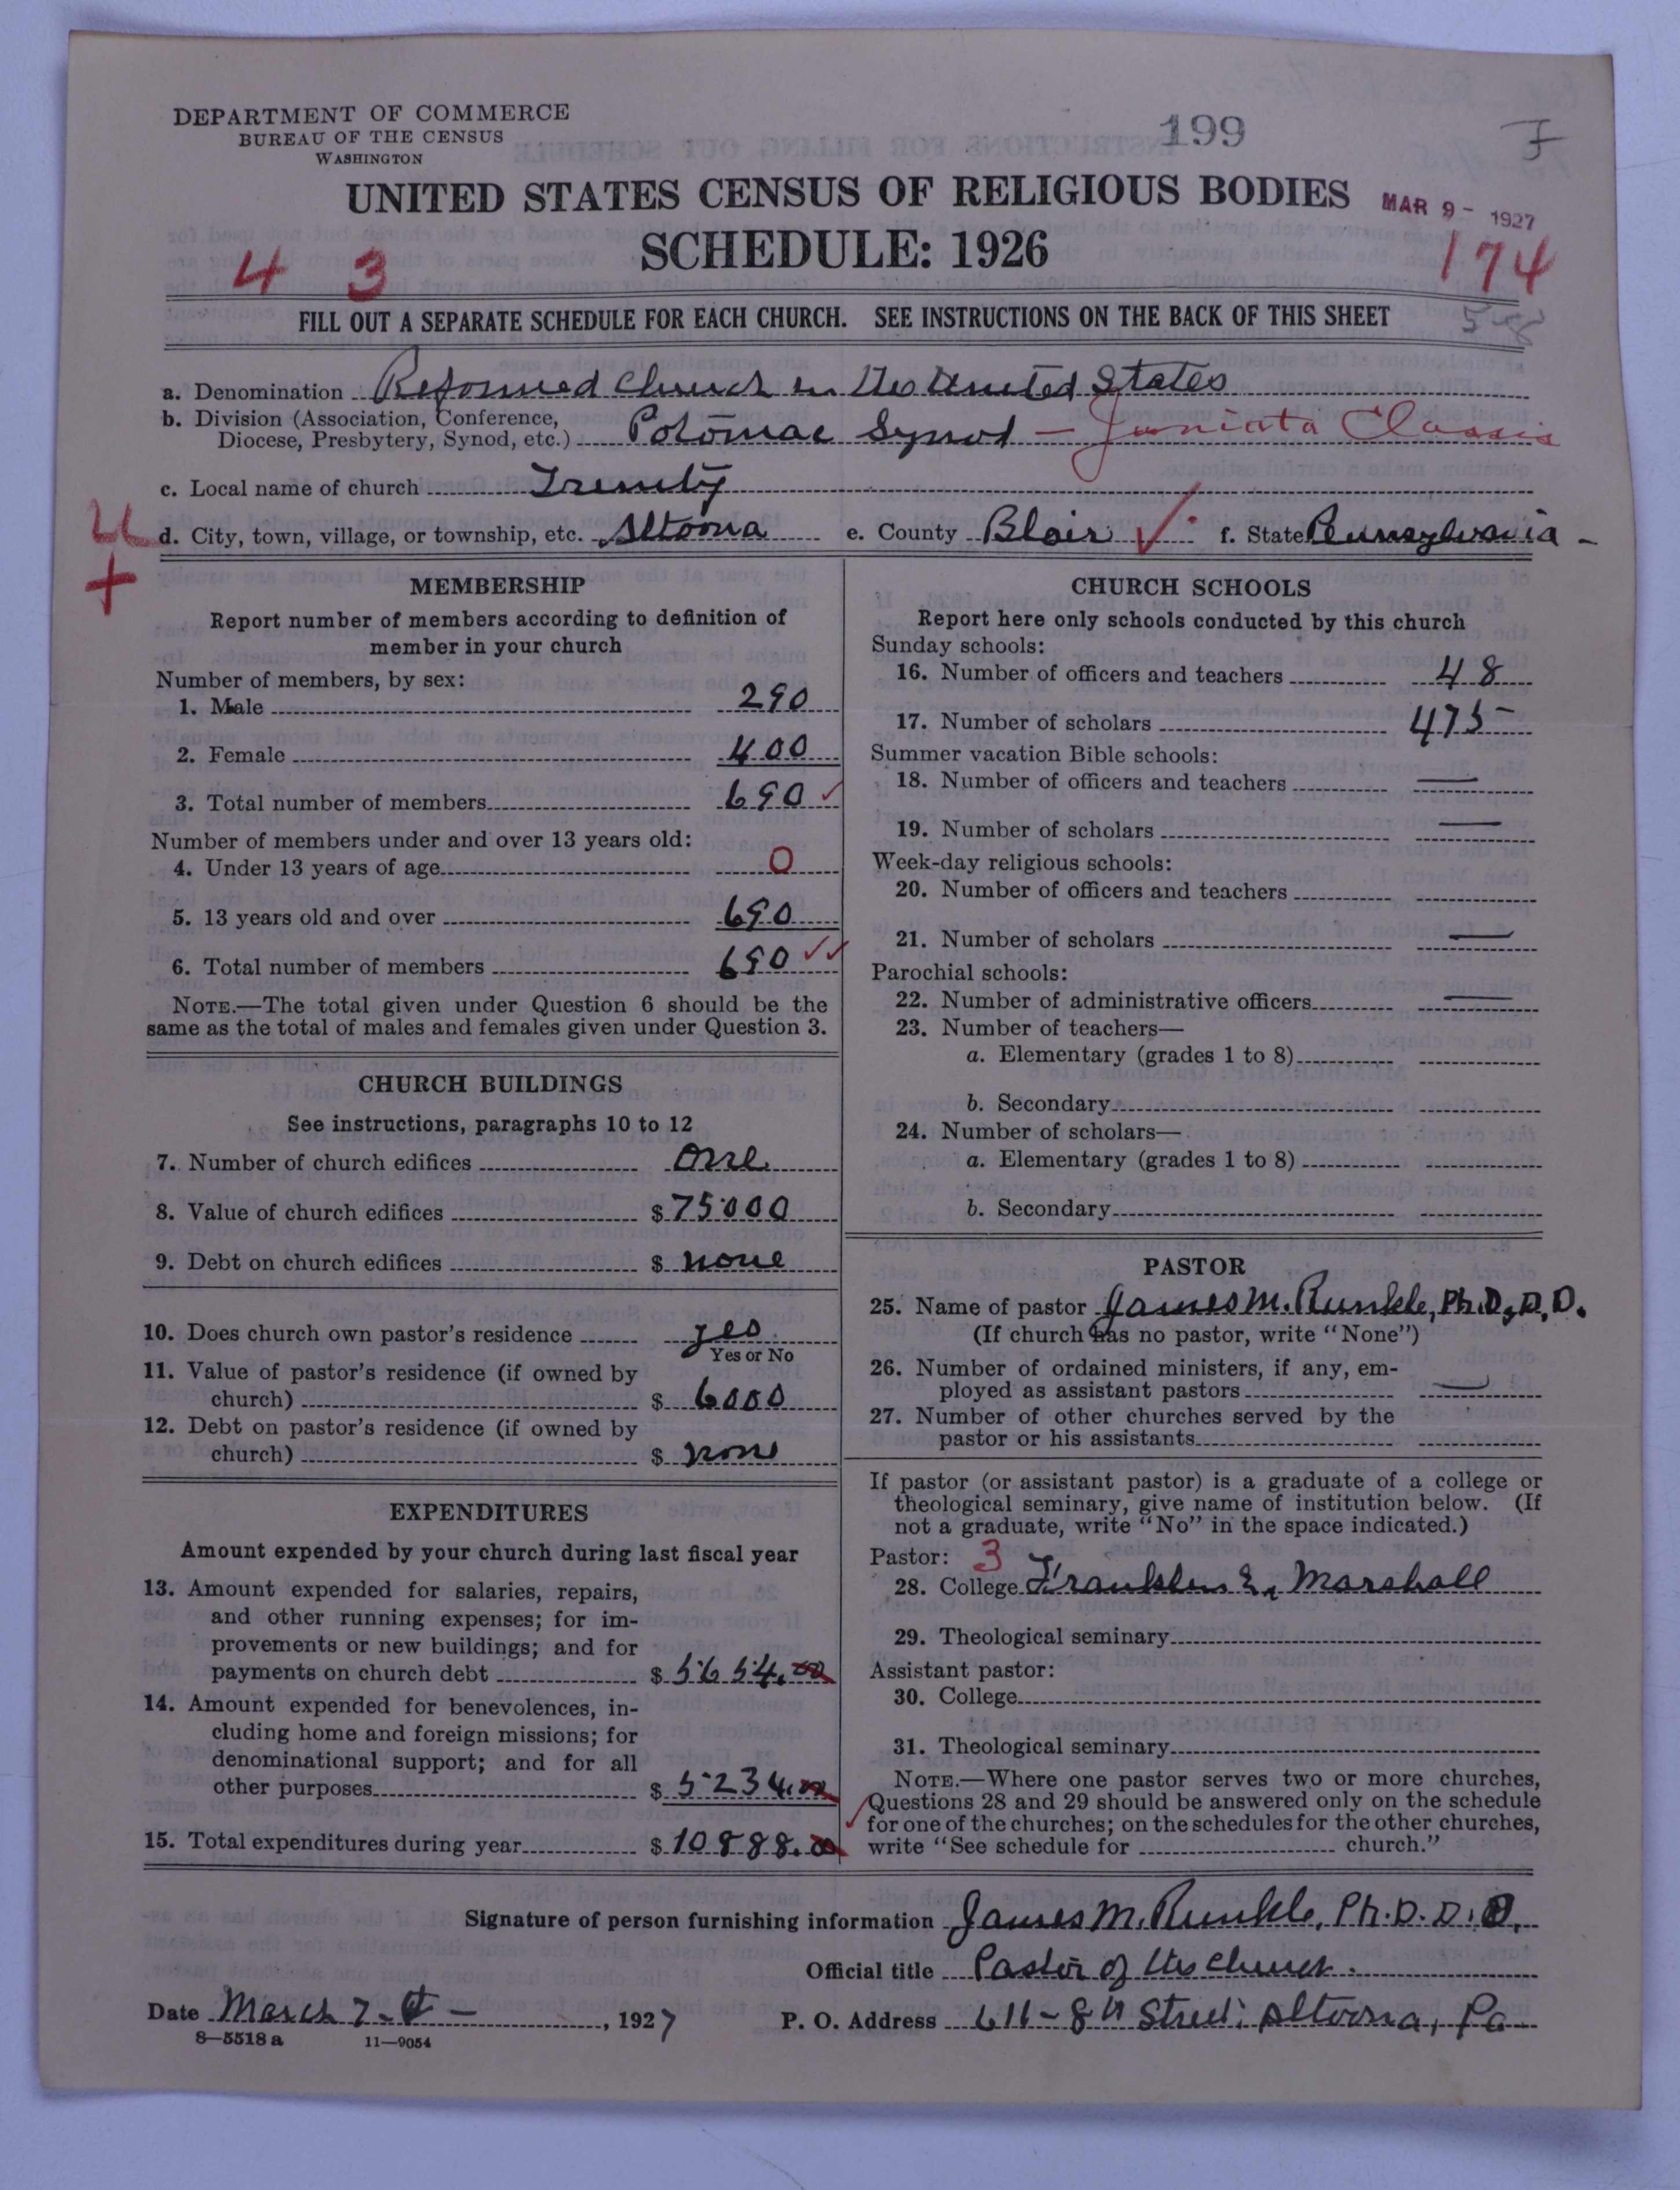 DEPARTMENT OF COMMERCE
BUREAU OF THE CENSUS
WASHINGTON
199
F
UNITED STATES CENSUS OF RELIGIOUS BODIES
MAR 9 - 1927
SCHEDULE: 1926
4 3
174
FILL OUT A SEPARATE SCHEDULE FOR EACH CHURCH. SEE INSTRUCTIONS ON THE BACK OF THIS SHEET
58
a. Denomination Reformed Church in the United States
b. Division (Association, Conference,
Diocese, Presbytery, Synod, etc.) Potomac Synod - Juniata Classis
c. Local name of church Trinity
d. City, town, village, or township, etc. Altoona e. County Blair f. State Pennsylvania -
MEMBERSHIP
Report number of members according to definition of
member in your church
Number of members, by sex:
1. Male 290
2. Female 400
3. Total number of members 690
Number of members under and over 13 years old:
4. Under 13 years of age 0
5. 13 years old and over 690
6. Total number of members 690
NOTE.—The total given under Question 6 should be the
same as the total of males and females given under Question 3.
CHURCH BUILDINGS
See instructions, paragraphs 10 to 12
7. Number of church edifices One
8. Value of church edifices $75000
9. Debt on church edifices $ none
10. Does church own pastor's residence yes
Yes or No
11. Value of pastor's residence (if owned by
church) $ 6000
12. Debt on pastor's residence (if owned by
church) $ none
EXPENDITURES
Amount expended by your church during last fiscal year
13. Amount expended for salaries, repairs,
and other running expenses; for im-
provements or new buildings; and for
payments on church debt $ 5654.00
14. Amount expended for benevolences, in-
cluding home and foreign missions; for
denominational support; and for all
other purposes $ 5234.00
15. Total expenditures during year $ 10888.00
CHURCH SCHOOLS
Report here only schools conducted by this church
Sunday schools:
16. Number of officers and teachers 48
17. Number of scholars 475
Summer vacation Bible schools:
18. Number of officers and teachers —
19. Number of scholars —
Week-day religious schools:
20. Number of officers and teachers
21. Number of scholars —
Parochial schools:
22. Number of administrative officers —
23. Number of teachers—
a. Elementary (grades 1 to 8)
b. Secondary
24. Number of scholars—
a. Elementary (grades 1 to 8)
b. Secondary
PASTOR
25. Name of pastor James M. Runkle, Ph.D., D.D.
(If church has no pastor, write "None")
26. Number of ordained ministers, if any, em-
ployed as assistant pastors —
27. Number of other churches served by the
pastor or his assistants
If pastor (or assistant pastor) is a graduate of a college or
theological seminary, give name of institution below. (If
not a graduate, write "No" in the space indicated.)
Pastor: 3
28. College Franklin & Marshall
29. Theological seminary
Assistant pastor:
30. College
31. Theological seminary
NOTE.—Where one pastor serves two or more churches,
Questions 28 and 29 should be answered only on the schedule
for one of the churches; on the schedules for the other churches,
write "See schedule for church."
Signature of person furnishing information James M. Runkle, Ph.D. D.D.
Official title Pastor of the church.
Date March 7 -, 1927 P. O. Address 611 - 8th Street: Altoona, Pa
8—5518 a 11—9054